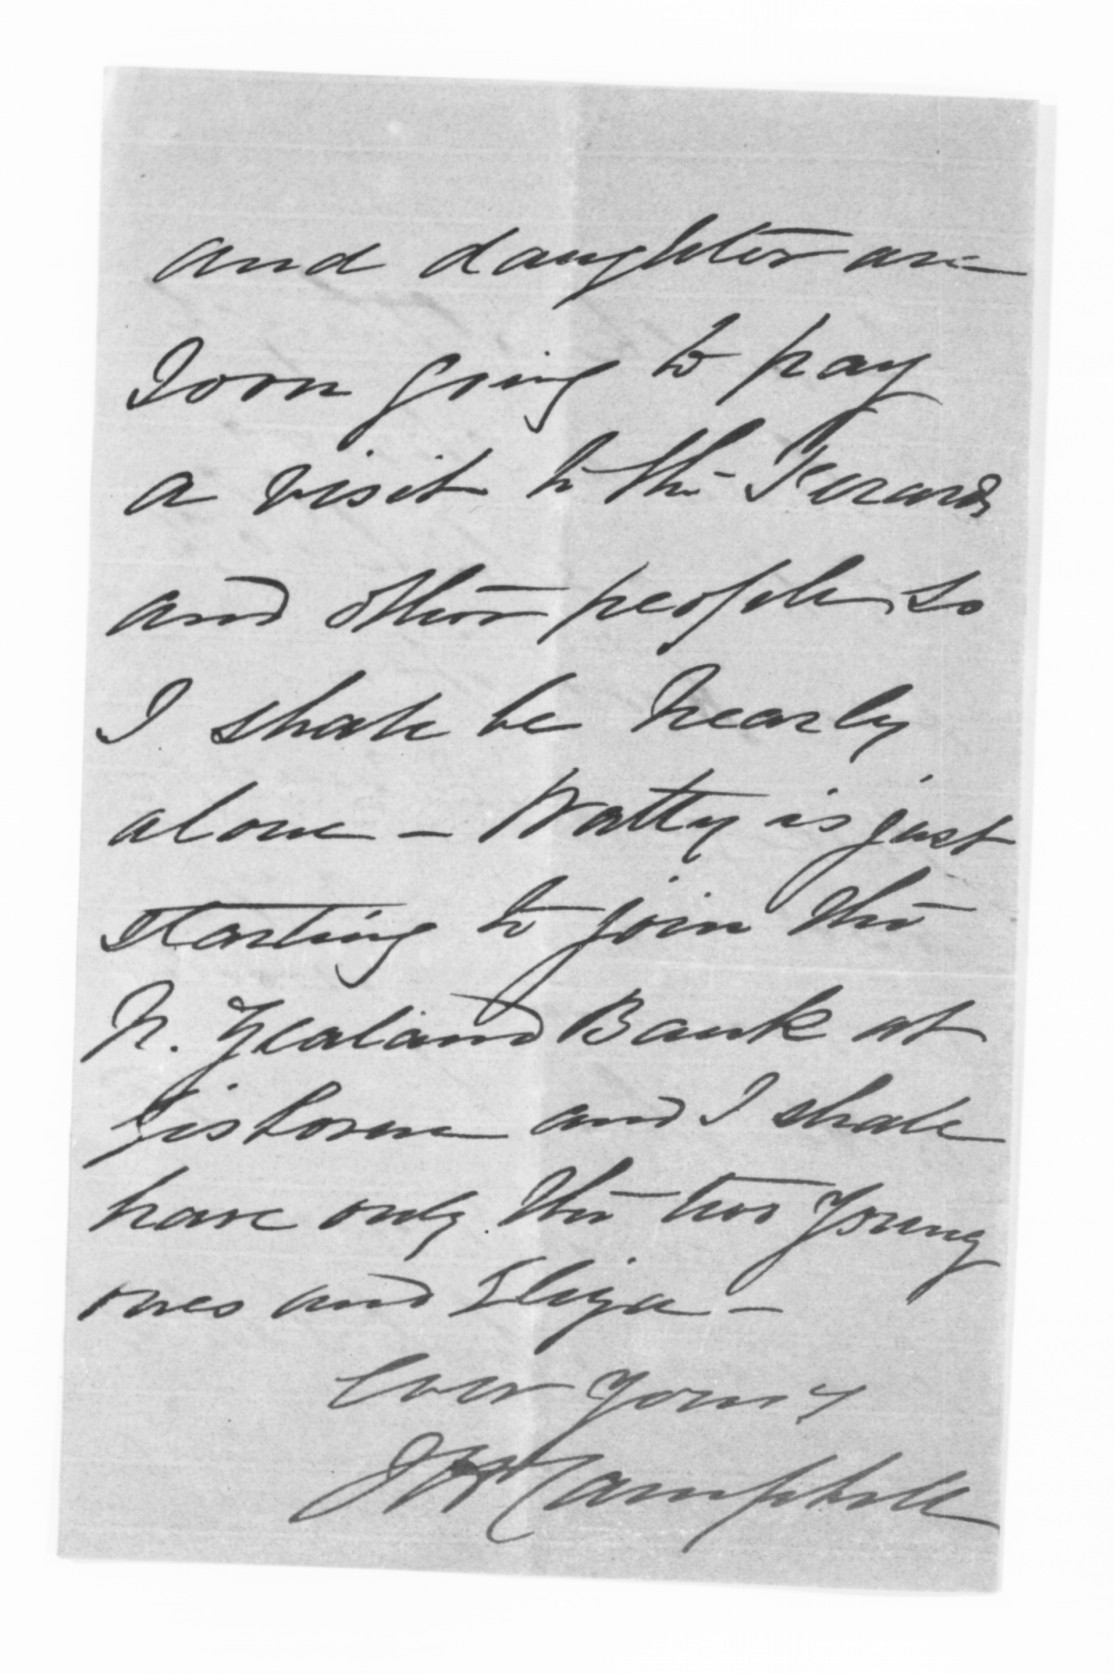 and daughter are
soon going to pay
a visit to the
and other people so
I shall be nearly
alone - Watty is just
starting to join the
N. Zealand Bank at
Gisborne and I shall
have only the two young
ones and Eliza -
Ever yours
Campbell